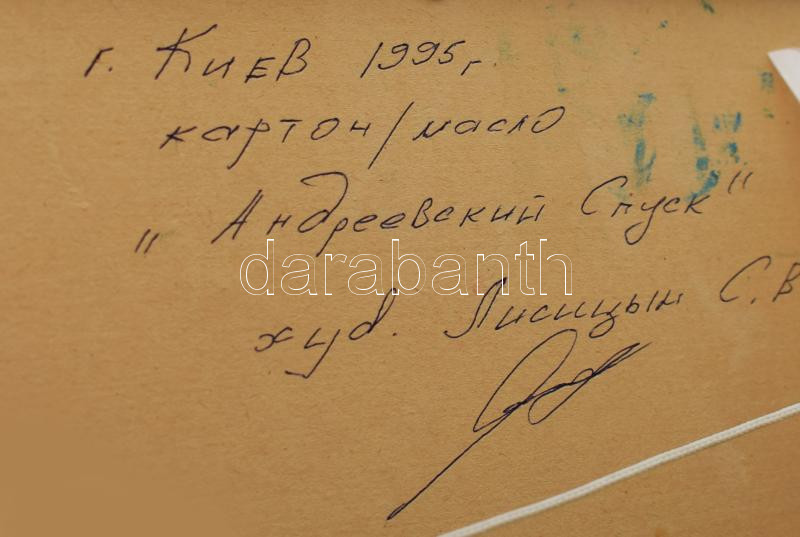 г. Киев 1995г.
картон/масло
"Андреевский Спуск"
darabanth
худ. Лисицын С.В